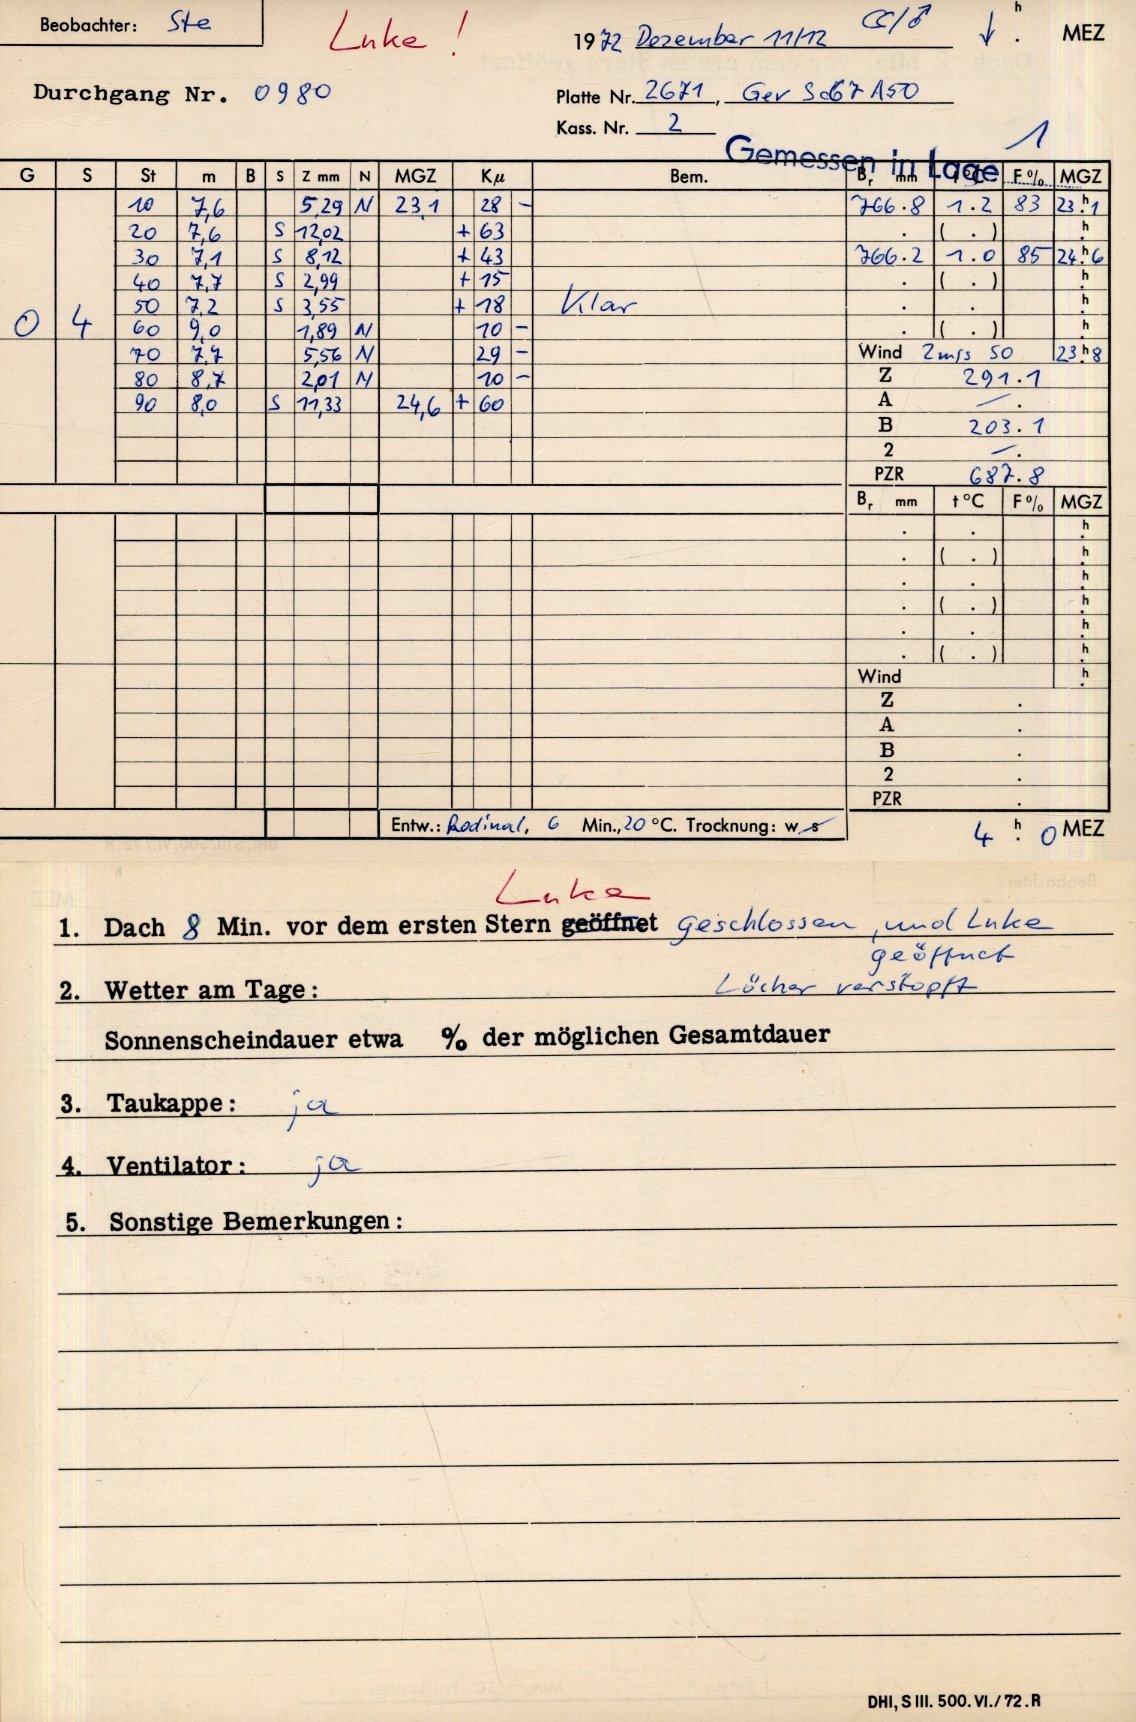 Beobachter: Ste
Luke !
1972 Dezember 11/12
h
. MEZ
Durchgang Nr. 0980
Platte Nr. 2671, Gev Sc67 A50
Kass. Nr. 2
Gemessen in Lage 1
G S St m B S Z mm N MGZ Kµ Bem. Br mm t °C F % MGZ
10 7,6 5,29 N 23,1 28 - 766.8 1.2 83 23h.1
20 7,6 S 12,02 + 63 . ( . ) h.
30 7,1 S 8,12 + 43 766.2 1.0 85 24h.6
40 7,7 S 2,99 + 15 . ( . ) h.
50 7,2 S 3,55 + 18 Klar . . h.
0 4 60 9,0 1,89 N 10 - . ( . ) h.
70 7,7 5,56 N 29 - Wind 2m/s SO 23h.8
80 8,7 2,01 N 10 - Z 291.1
90 8,0 S 11,33 24,6 + 60 A — .
B 203.1
2 — .
PZR 687.8
Br mm t °C F % MGZ
. . h.
. ( . ) h.
. . h.
. ( . ) h.
. . h.
. ( . ) h.
Wind h.
Z .
A .
B .
2 .
PZR .
Entw.: Rodinal, 6 Min., 20 °C. Trocknung: w s
4 h. 0 MEZ
Luke
1. Dach 8 Min. vor dem ersten Stern geöffnet geschlossen, und Luke
geöffnet
2. Wetter am Tage: Löcher verstopft
Sonnenscheindauer etwa % der möglichen Gesamtdauer
3. Taukappe: ja
4. Ventilator: ja
5. Sonstige Bemerkungen:
DHI, S III. 500. VI. / 72 . R